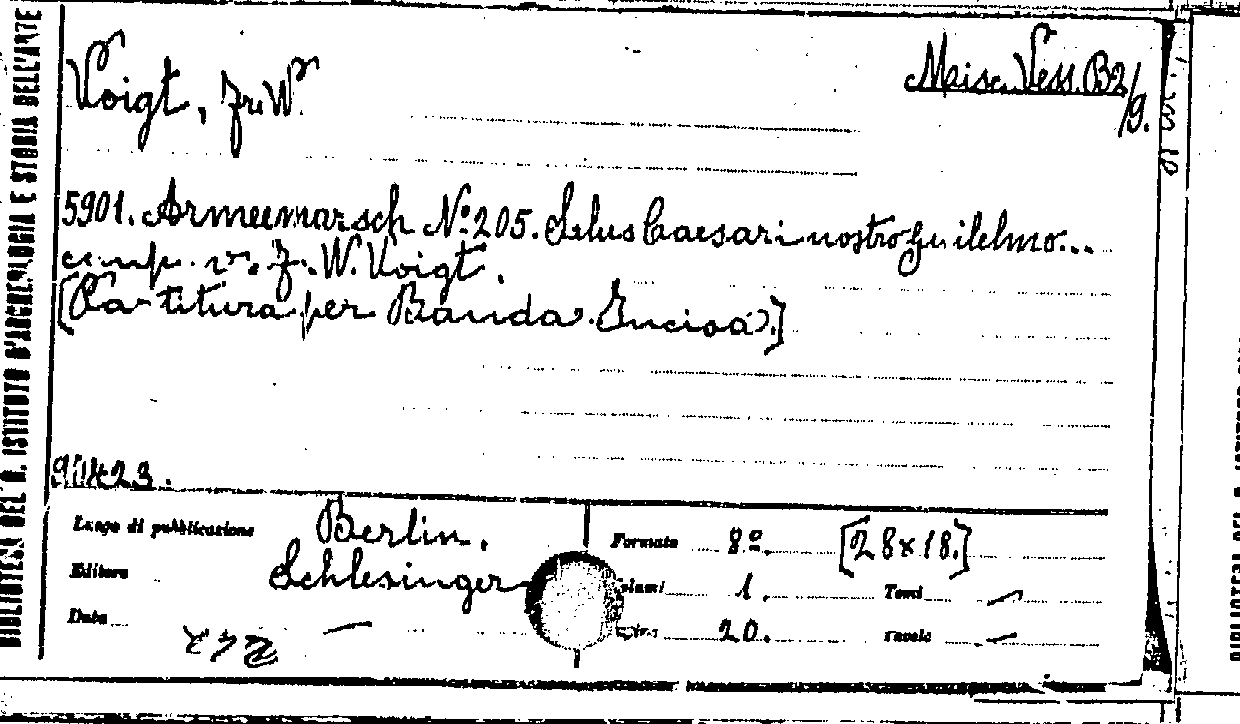 BIBLIOTECA DEL R. ISTITUTO D'ARCHEOLOGIA E STORIA DELL'ARTE
Voigt, Fr. W.
Misc. Vess. B2/9.
5901. Armeemarsch Nº 205. Salus Caesari nostro Guilelmo...
comp. v. F. W. Voigt.
[Partitura per Banda. Incisa.]
90423.
Luogo di pubblicazione Berlin.
Formato 8º. [28x18.]
Editore Schlesinger
Volumi 1. Tomi —
Data —
20. Tavole —